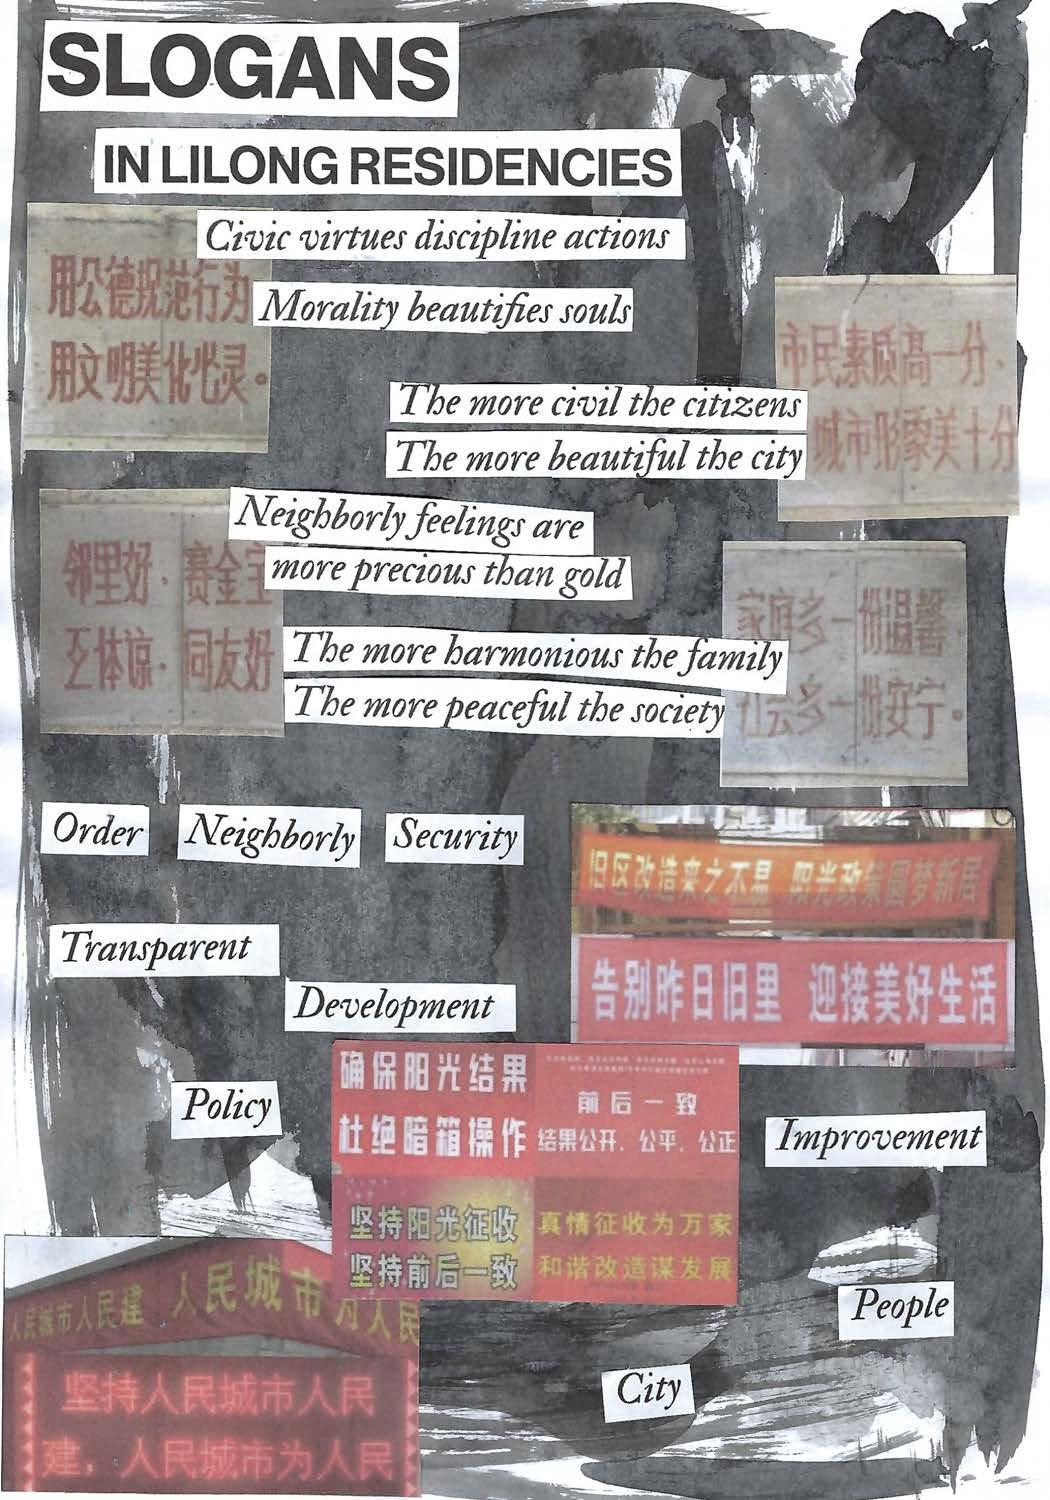 SLOGANS
IN LILONG RESIDENCIES
Civic virtues discipline actions
用公德规范行为
Morality beautifies souls
用文明美化心灵。
市民素质高一分.
The more civil the citizens
城市形象美十分
The more beautiful the city
Neighborly feelings are
more precious than gold
邻里好.赛金宝
互体谅.同友好
家庭多一份温馨
The more harmonious the family
The more peaceful the society
社会多一份安宁。
Order Neighborly Security
旧区改造来之不易 阳光政策圆梦新居
Transparent
告别昨日旧里 迎接美好生活
Development
确保阳光结果
杜绝暗箱操作
前后一致
结果公开、公平、公正
Policy
Improvement
坚持阳光征收
坚持前后一致
真情征收为万家
和谐改造谋发展
人民城市人民建 人民城市为人民
People
坚持人民城市人民
建，人民城市为人民
City